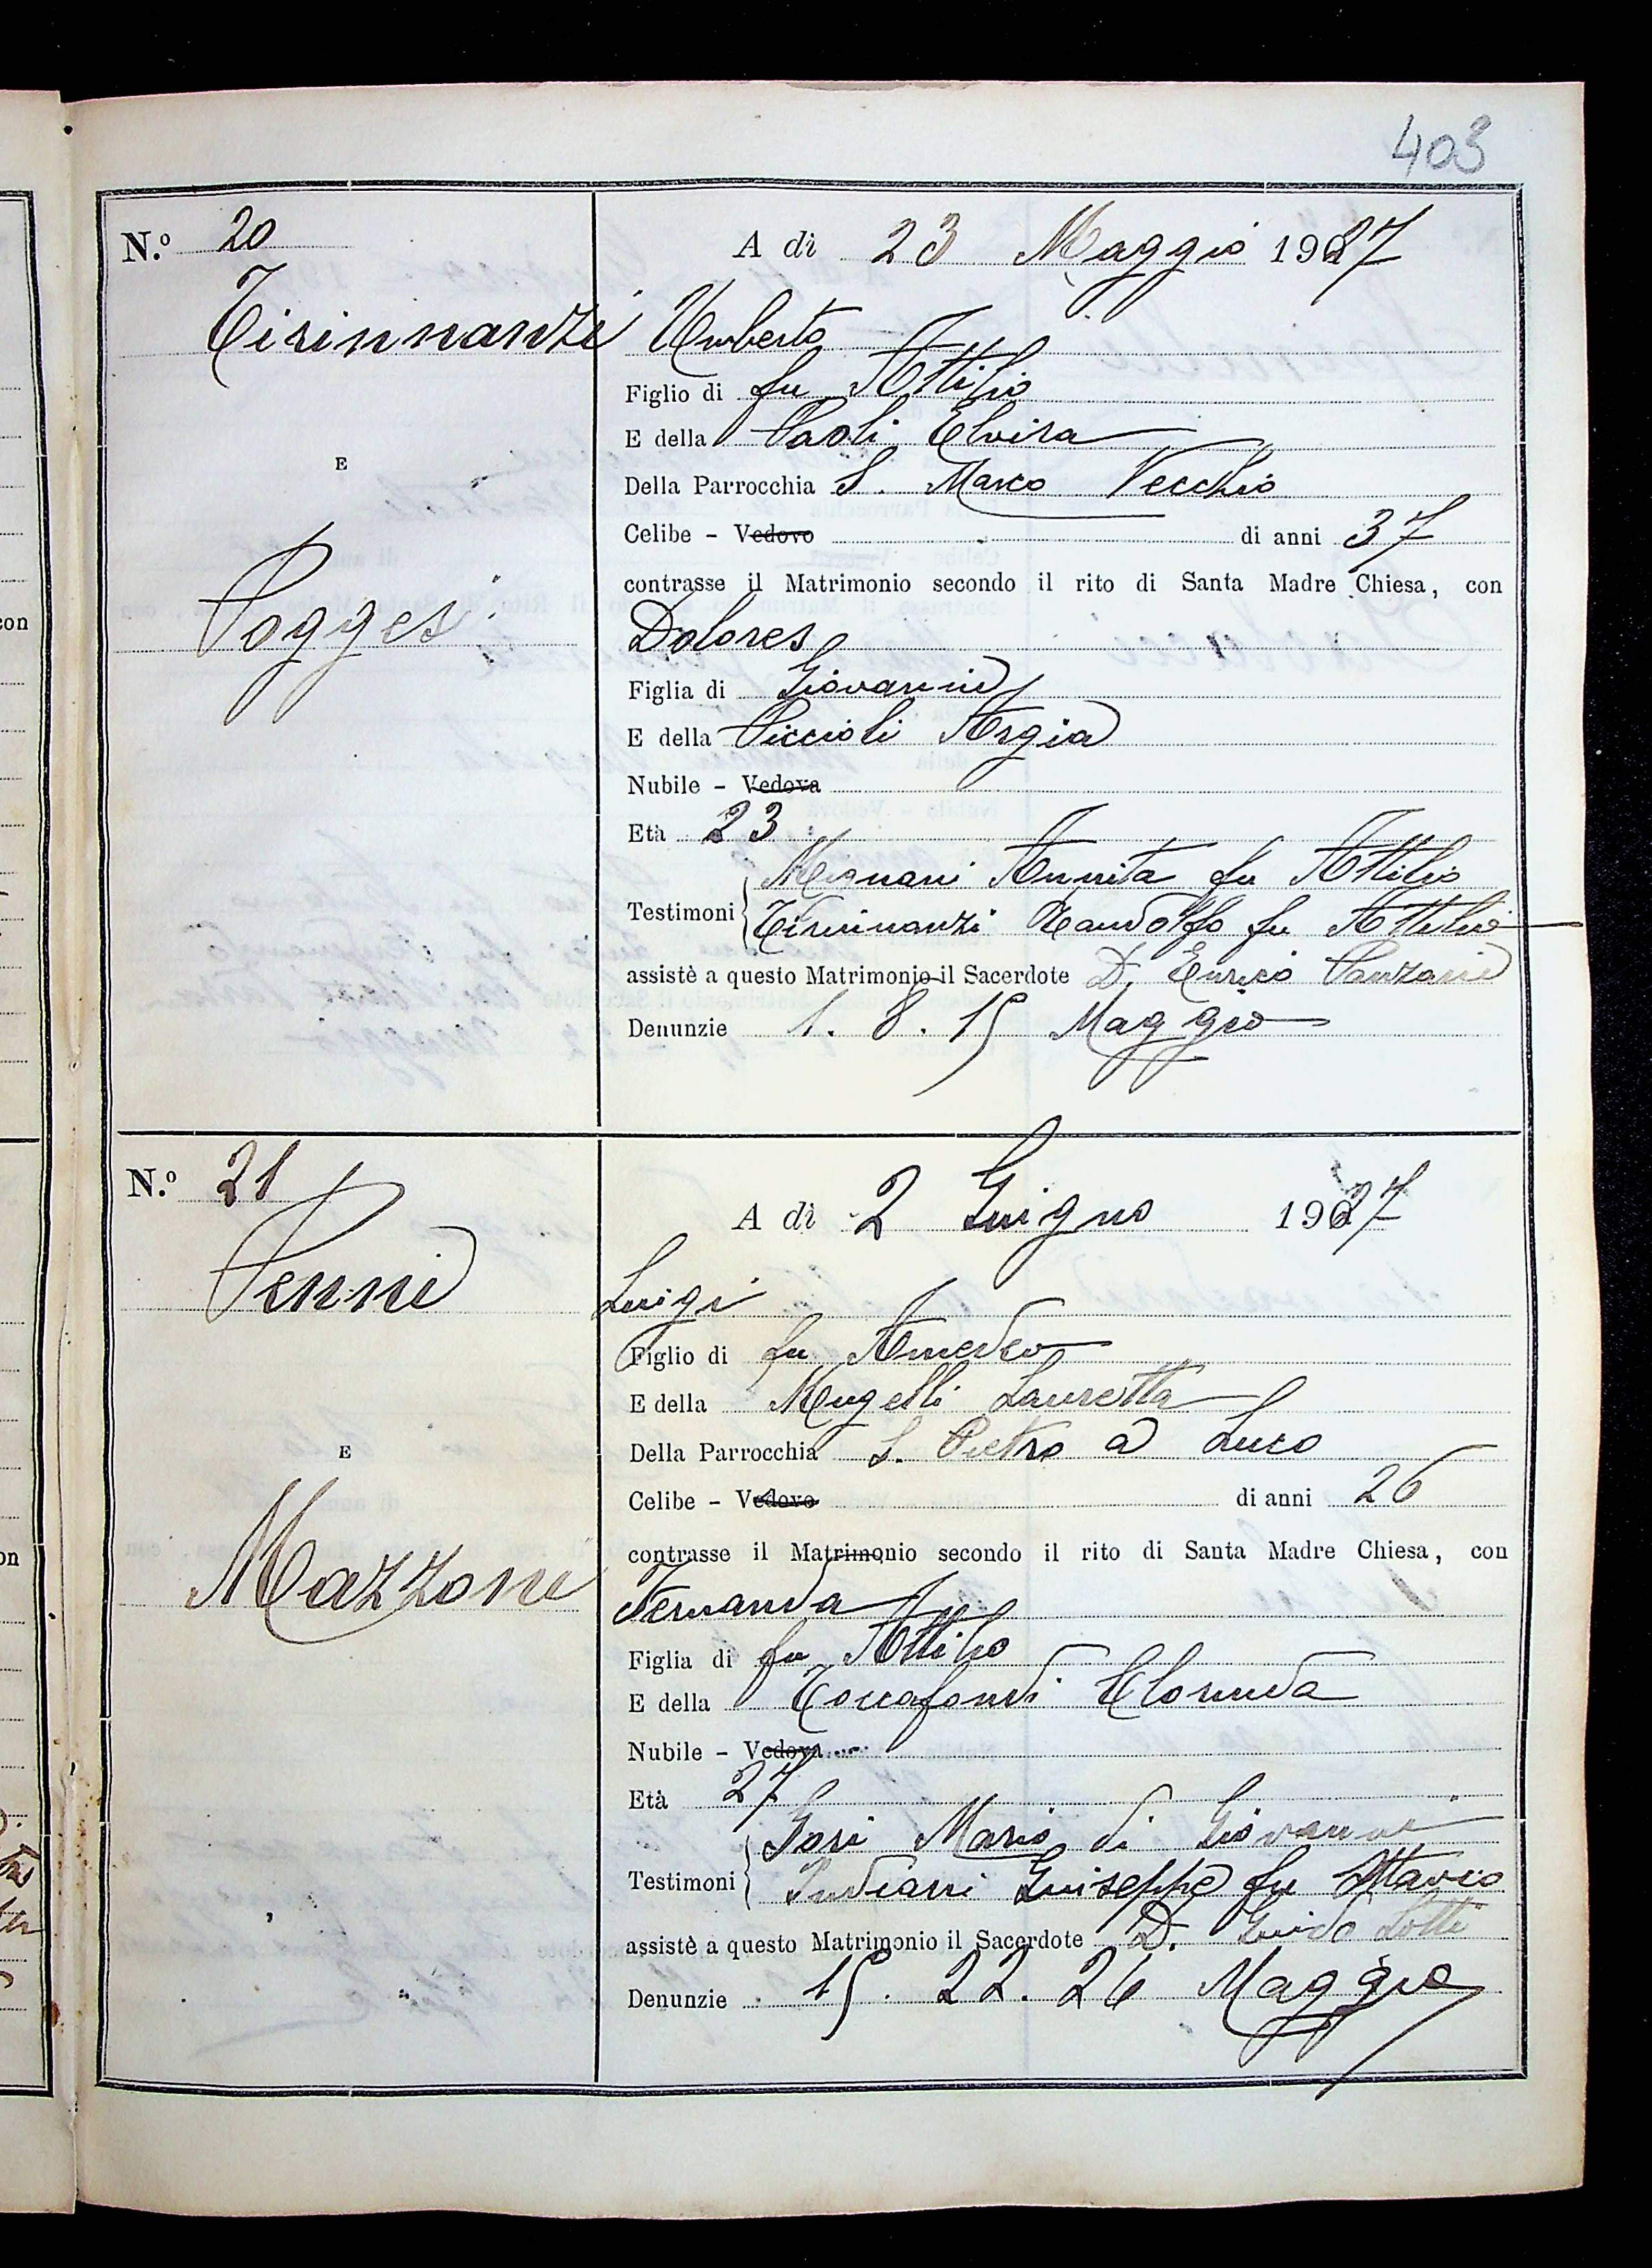 403
N.º 20
A dì 23 Maggio 1927
Tirinnanzi Umberto
Figlio di fu Attilio
E della Paoli Elvira
Della Parrocchia S. Marco Vecchio
E
Celibe - Vedovo di anni 37
contrasse il Matrimonio secondo il rito di Santa Madre Chiesa, con
Poggesi Dolores
Figlia di Giovanni
E della Piccioli Argia
Nubile - Vedova
Età 23
Testimoni Mignani Annita fu Attilio
Tirinnanzi Randolfo fu Attilio
assistè a questo Matrimonio il Sacerdote D. Enrico Panzani
Denunzie 1. 8. 15 Maggio
N.º 21
A dì 2 Giugno 1927
Penni Luigi
Figlio di fu Amedeo
E della Mugelli Lauretta
Della Parrocchia S. Pietro a Luco
E
Celibe - Vedovo di anni 26
contrasse il Matrimonio secondo il rito di Santa Madre Chiesa, con
Mazzoni Fernanda
Figlia di fu Attilio
E della Toccafondi Clorinda
Nubile - Vedova
Età 27
Testimoni Gori Mario di Giovanni
Giuseppe fu Ottavio
assistè a questo Matrimonio il Sacerdote D. Guido Lotti
Denunzie 15. 22. 26 Maggio
con